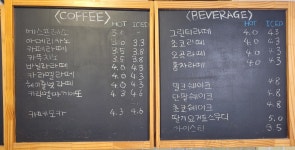 <COFFEE>
HOT ICED
에스프레소 3.0 -
아메리카노 3.0 3.3
카페라떼 3.5 3.8
카푸치노 3.5 3.8
바닐라라떼 4.0 4.3
카라멜라떼 4.0 4.3
헤이즐넛라떼 4.0 4.3
카라멜마끼아또 4.0 4.3
카페모카 4.3 4.6
<BEVERAGE>
HOT ICED
그린티라떼 4.0 4.3
초코라떼 4.0 4.3
오곡라떼 4.0 4.3
홍차라떼 4.0 4.3
밀크쉐이크 4.8
단팥쉐이크 4.8
초코쉐이크 4.8
딸기요거트스무디 5.0
아이스티 3.5